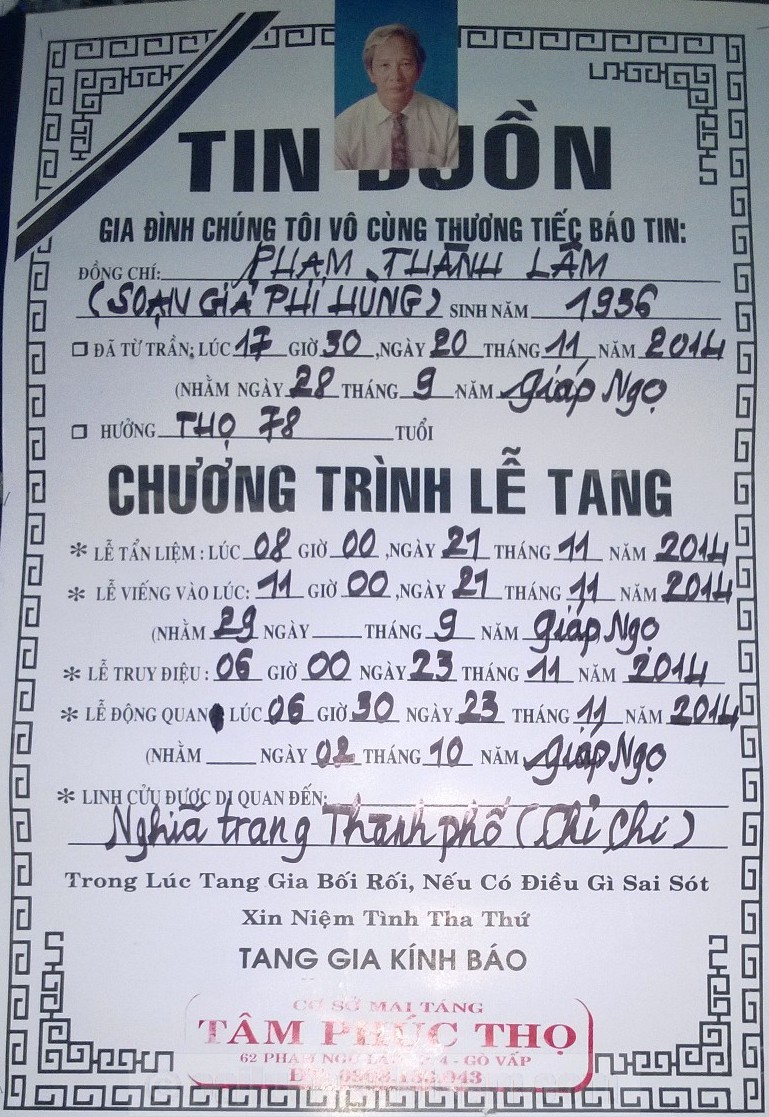 TIN BUỒN
GIA ĐÌNH CHÚNG TÔI VÔ CÙNG THƯƠNG TIẾC BÁO TIN:
ĐỒNG CHÍ: PHẠM THÀNH LÂM
(SOẠN GIẢ PHI HÙNG) SINH NĂM 1936
ĐÃ TỪ TRẦN; LÚC 17 GIỜ 30, NGÀY 20 THÁNG 11, NĂM 2014
(NHẰM NGÀY 28 THÁNG 9 NĂM Giáp Ngọ
HƯỞNG THỌ 78 TUỔI
CHƯƠNG TRÌNH LỄ TANG
* LỄ TẨN LIỆM : LÚC 08 GIỜ 00, NGÀY 21 THÁNG 11 NĂM 2014
* LỄ VIẾNG VÀO LÚC: 11 GIỜ 00, NGÀY 21 THÁNG 11 NĂM 2014
(NHẰM 29 NGÀY THÁNG 9 NĂM Giáp Ngọ
* LỄ TRUY ĐIỆU : 06 GIỜ 00 NGÀY 23 THÁNG 11 NĂM 2014
* LỄ ĐỘNG QUAN LÚC 06 GIỜ 30 NGÀY 23 THÁNG 11 NĂM 2014
(NHẰM NGÀY 02 THÁNG 10 NĂM Giáp Ngọ
* LINH CỬU ĐƯỢC DI QUAN ĐẾN:
Nghĩa trang Thành phố (Củ Chi)
Trong Lúc Tang Gia Bối Rối, Nếu Có Điều Gì Sai Sót
Xin Niệm Tình Tha Thứ
TANG GIA KÍNH BÁO
CƠ SỞ MAI TÁNG
TÂM PHÚC THỌ
62 PHẠM NGŨ LÃO 4 - GÒ VẤP